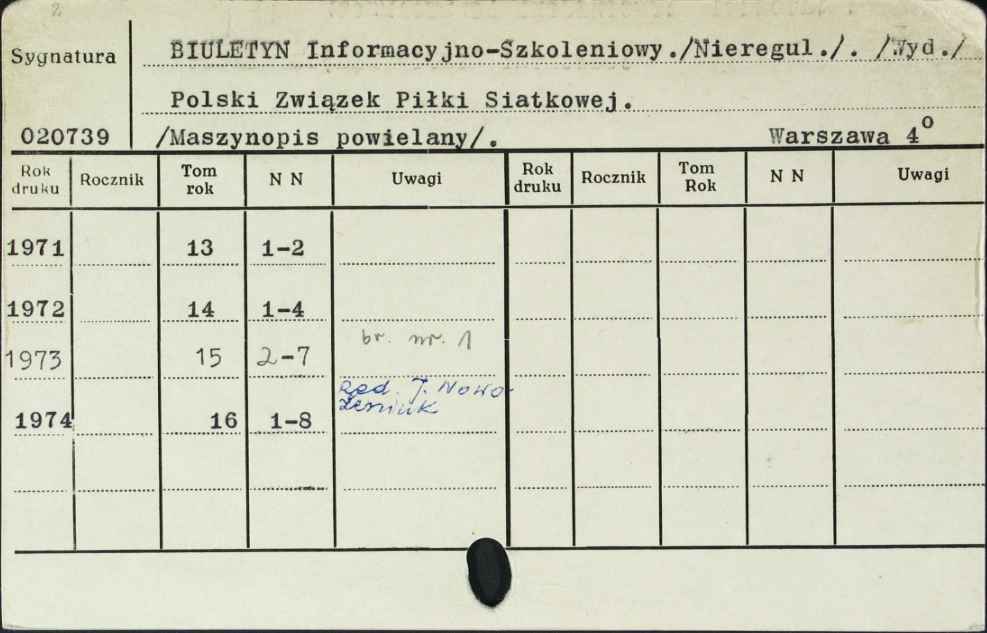 2
Sygnatura
BIULETYN Informacyjno-Szkoleniowy./Nieregul./. /Wyd./
Polski Związek Piłki Siatkowej.
020739 /Maszynopis powielany/. Warszawa 4o
Rok druku Rocznik Tom rok N N Uwagi Rok druku Rocznik Tom Rok N N Uwagi
1971 13 1-2
1972 14 1-4
1973 15 2-7 br. nr. 1
1974 16 1-8 Red. J. Nowo-
leniuk